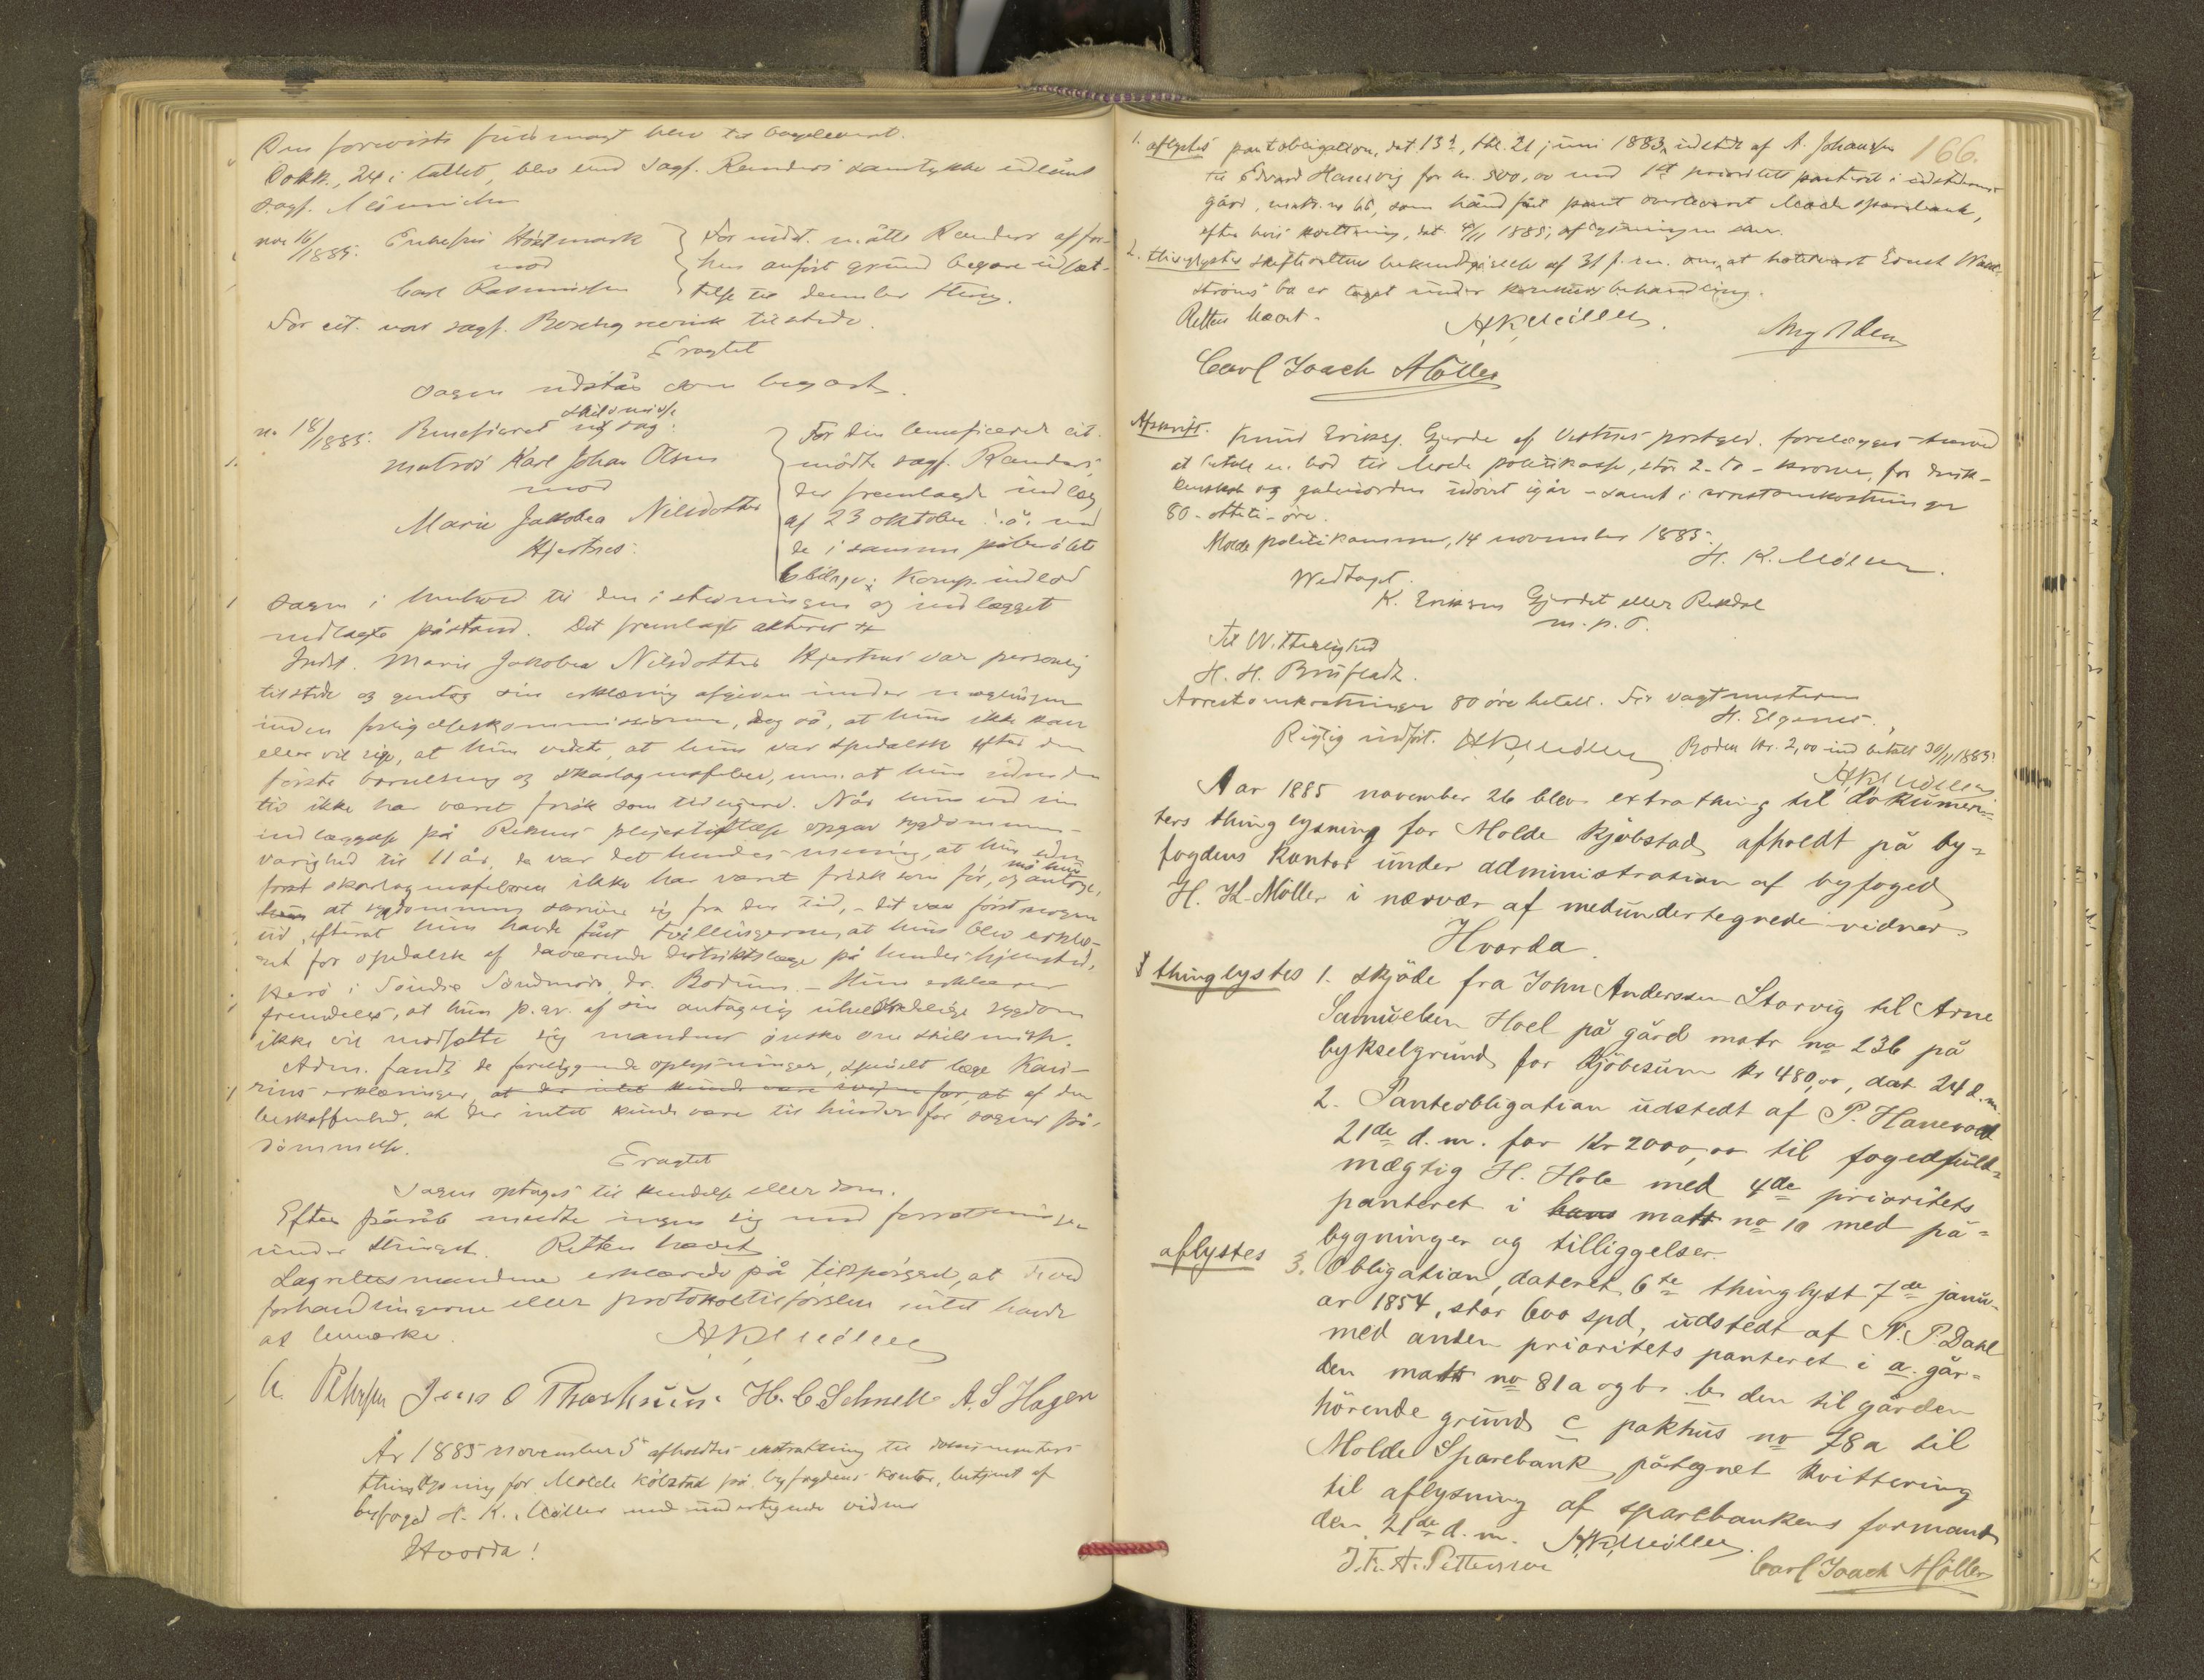 Den foreviste fuldmagt blev tilbageleveret.
Dokk., 24 i tallet, blev med sagf. Randers samtykke udlånt
sagf. Mönnichen
no 16/1885. Enkefru Höstmark
mod
Carl Rasmussen
For indst. mötte Randers af for-
hen anfört grund begjære udsæt-
telse til dember thing.
For cit. var sagf. tilstede.
Eragtet
Sagen udstår som begjært.
no 18/1885. Beneficeret skilsmisse sag:
matros Karl Johan Olsen
mod
Marie Jakobea Nilsdotter
Hjertnes.
For den beneficerede cit.
mödte sagf. Randers,
der fremlagde indlæg
af 23 oktober d. å. med
de i samme påberåbte
bilage; Komp. indlod
sagen i henhold til den i stevningen og indlægget
nedlagte påstand. Det fremlagte akteres
Indst. Marie Jakobea Nilsdotter Hjertnes var personlig
tilstede og gentog sin erklæring afgiven under mæglingen
inden forligelseskommissionen, dog så, at hun ikke kan
eller vil sige, at hun vidste, at hun var spedalsk efter den
förste barnelseng og skarlagensfeber, men at hun siden den
tid ikke har været frisk som tidligere. Når hun ved sin
indlæggelse på Reknes plejestiftelse opgav sygdommens
varighed til 11 år, da var det hendes mening, at hun siden
först skarlagensfeberen ikke har været frisk som för, og må hun antage,
at sygdommen skriver sig fra den tid, – det var först nogen
tid, efterat hun havde fået tvillingerne, at hun blev erklæ-
ret for spedalsk af daværende distriktslæge på hendes hjemsted,
Herö i Söndre Söndmöre, dr. – Hun erklærer
fremdeles, at hun p. gr. af sin antagelig uhelbredelige sygdom
ikke vil modsætte sig mandens önske om skilsmisse.
Adm. fandt de foreliggende oplysninger, specielt læge Kau-
rins erklæringer, at der intet kunde være ivejen for, at af den
beskaffenhed, at der intet kunde være til hinder for sagens på-
dömmelse.
Eragtet
Sagen optages til kendelse eller dom.
Efter påråb meldte ingen sig med forretninger
under thinget. Retten hævet
Lagrettesmændene erklærede på tilspörgsel, at ved
forhandlingerne eller protokoltilförslen intet havde
at bemærke. H. K. Möller
Petersen Jens O Thorhuus. H. C Schnell A. S Hagen
År 1885 november 5 afholdtes extrathing til dokumenters
thinglysning for Molde köbstad på byfogdens kontor, betjent af
byfoged H. K. Möller med undertegnede vidner
Hvorda!
166.
1. aflystes pantobligation, dat 13d, thl. 21 juni 1883, udstedt af A. Johansen
til Edvard Hansvig for kr. 500,00 med 1st prioritets panteret i udstederens
gård, matr. no 65, som håndfået pant overleveret Molde sparebank,
efter hvis kvittering, dat. 4/11 1885, aflysningen sker.
2. thinglystes skifterettens bekendtgjörelse af 31 f. m. om, at
ströms bo er taget under konkursbehandling.
Retten hævet. H. K. Möller.
Carl Joach Möller
Afskrift. Knud Eriksj. Gjerde af Vestnes prstgld. forelægges herved
at betale en bod til Molde politikasse, stor 2 – to – kroner, for drik-
og gadeuorden udövet igår – samt i arrestomkostninger
80 – otteti – öre.
Molde politikammer, 14 november 1885.
H. K. Möller.
Vedtaget.
K. Eriksen Gjerdet eller Rekdal
m. p. P.
Til Vitterlighed
H. H. Brufladt.
Arrestomkostninger 80 öre betalt. For vagtmesteren
H. Elgenes.
Rigtig indfört. H. K. Möller Boden kr. 2,00 indbetalt 30/11 1885.
H. K. Möller
Aar 1885 november 26 blev extrathing til dokumen-
ters thinglysning for Molde kjöbstad afholdt på by-
fogdens kontor under administration af byfoged
H. K. Möller i nærvær af medundertegnede vidner
Hvorda.
thinglystes 1. Skjöde fra John Anderssen Storvig til Arne
Samuelsen Hoel på gård matr no 236 på
bykselgrund for kjöbesum kr 480,00, dat 24 d. m.
2. Panteobligation udstedt af P. Hanevold
21de d. m. for kr 2000,00 til fogedfuld-
mægtig H. Hole med 4de prioritets
panteret i hans matr no 10 med på-
bygninger og tilliggelser.
aflystes 3. Obligation, dateret 6te thinglyst 7de janu-
ar 1854, stor 600 spd, udstedt af N. P. Dahl
med anden prioritets panteret i a. går-
den matr no 81a og b. b. den til gården
hörende grund c pakhus no 78a til
Molde Sparebank påtegnet kvittering
til aflysning af sparebankens formand
den 21de d. m. H. K. Möller.
J. Fr. A. Petterson Carl Joach Möller